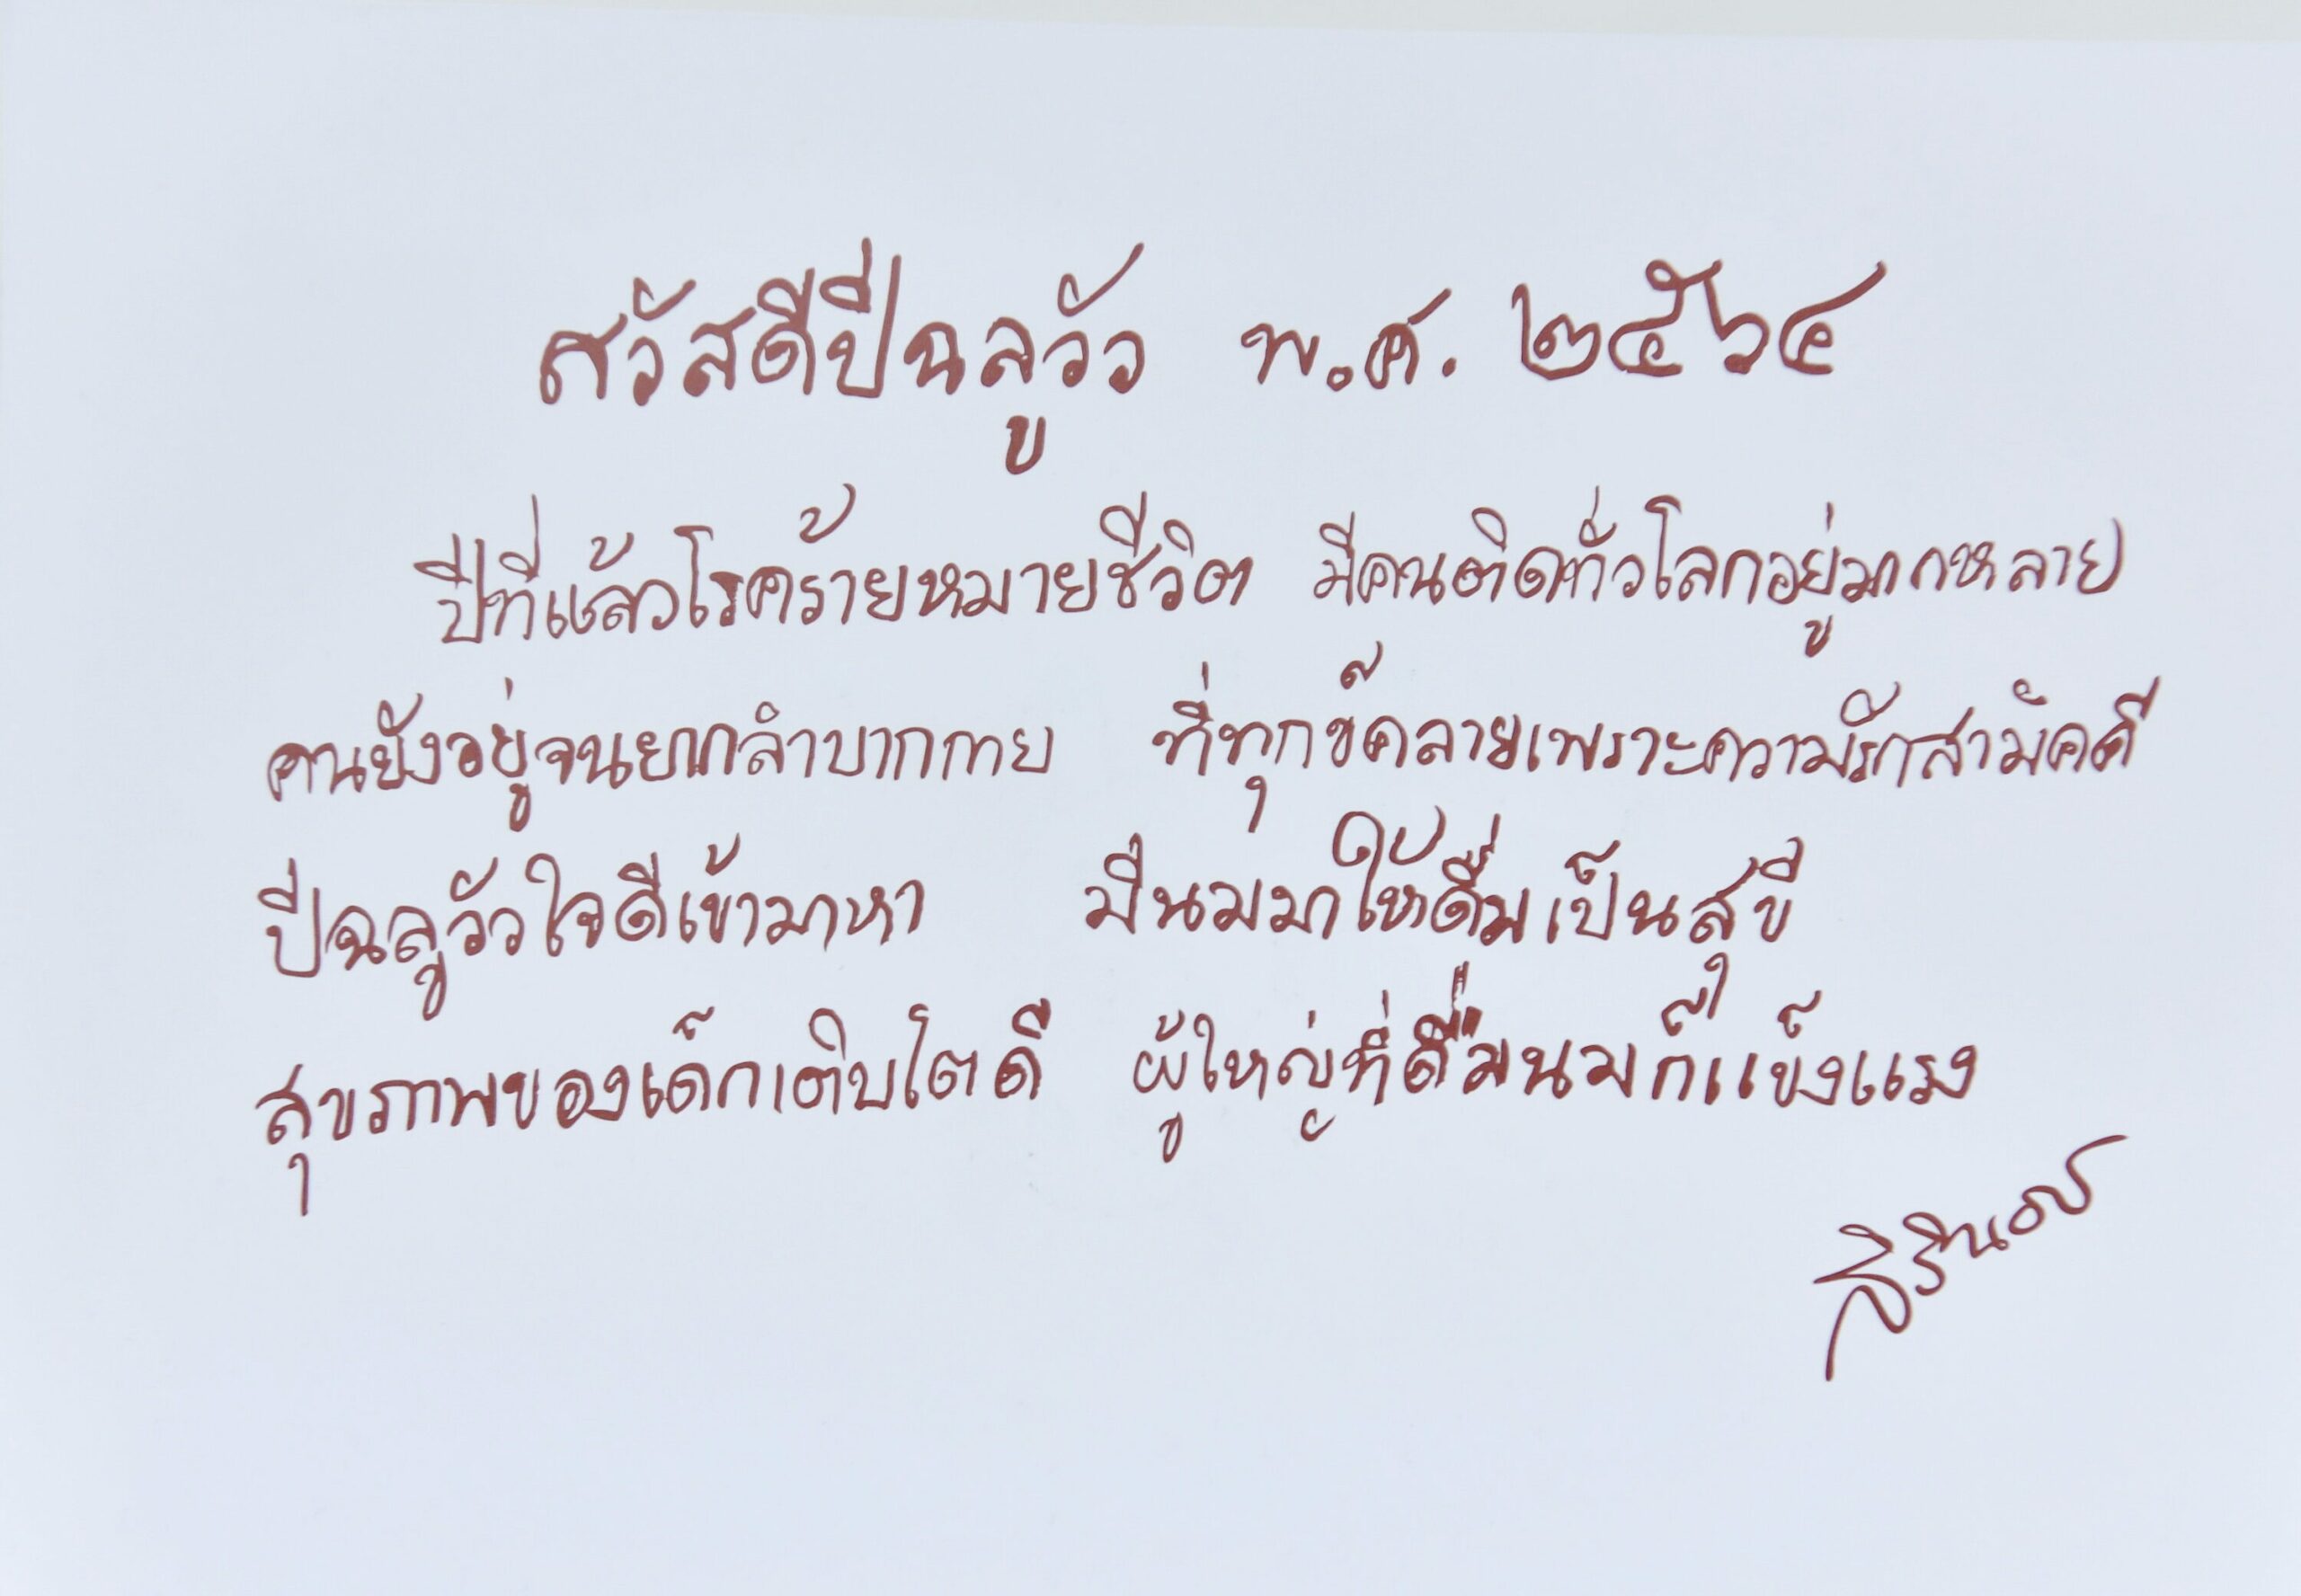 สวัสดีปีฉลูวัว พ.ศ. ๒๕๖๔
ปีที่แล้วโรคร้ายหมายชีวิต มีคนติดทั่วโลกอยู่มากหลาย
คนยังอยู่จนยากลำบากกาย ที่ทุกข์คลายเพราะความรักสามัคคี
ปีฉลูวัวใจดีเข้ามาหา มีนมมาให้ดื่มเป็นสุขี
สุขภาพของเด็กเติบโตดี ผู้ใหญ่ที่ดื่มนมก็แข็งแรง
สิรินธร